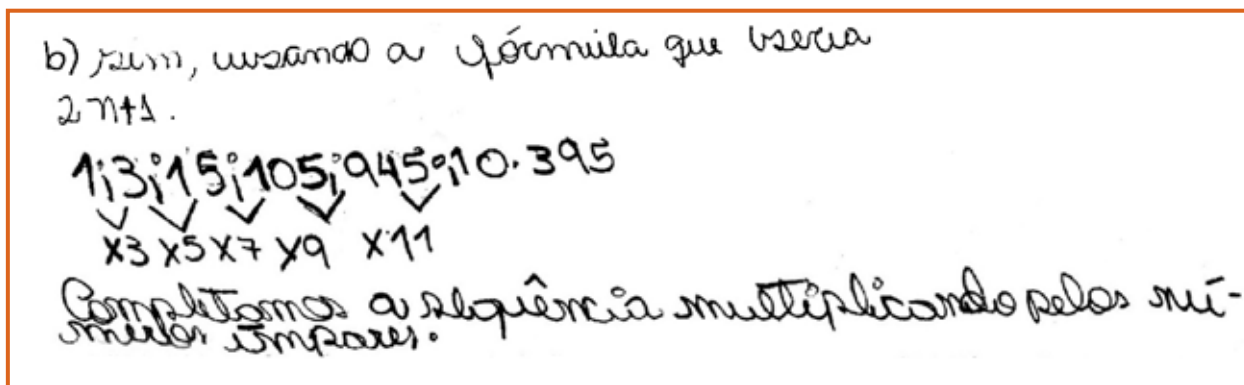 b) sim, usando a fórmula que seria
2n+1.
1;3;15;105;945;10.395
x3 x5 x7 x9 x11
Completamos a sequência multiplicando pelos nú-
meros ímpares.